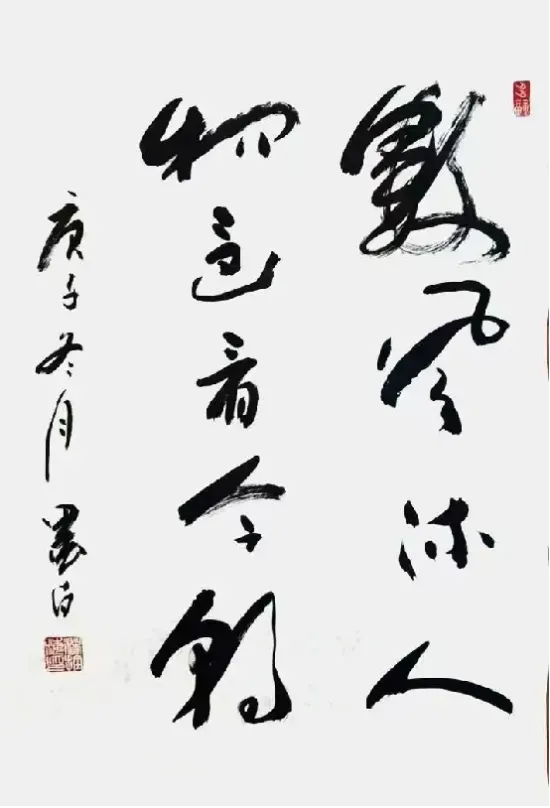 數風流人
物還看今朝
庚子冬月